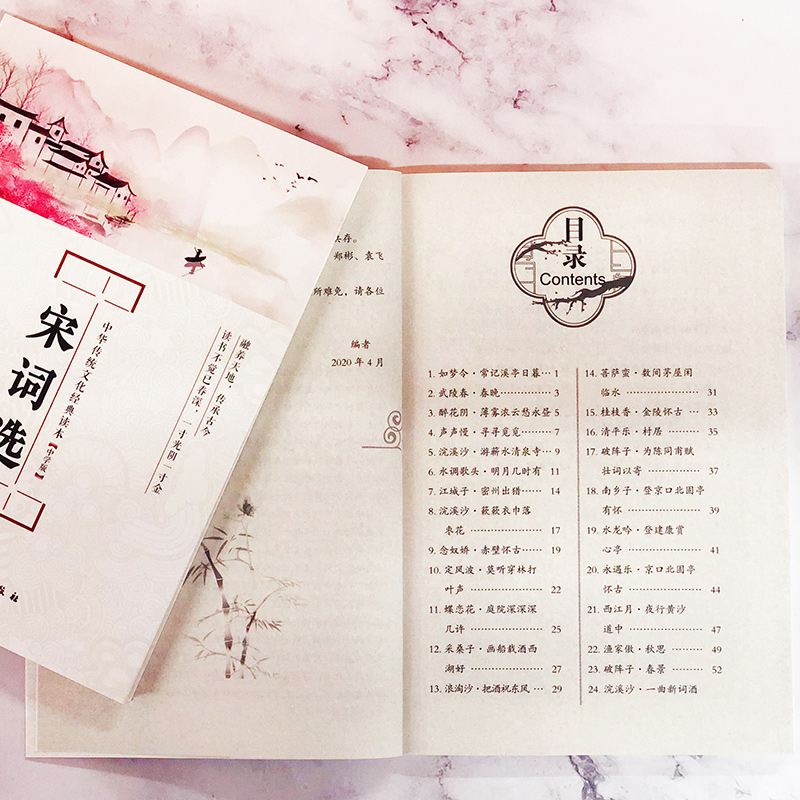 宋词选
中华传统文化经典读本【中学版】
融养天地，传承古今
读书不觉已春深，一寸光阴一寸金
版社
郑彬、袁飞
所难免，请各位
编者
2020年4月
目录
Contents
1. 如梦令·常记溪亭日暮··· 1
2. 武陵春·春晚············ 3
3. 醉花阴·薄雾浓云愁永昼 5
4. 声声慢·寻寻觅觅········· 7
5. 浣溪沙·游蕲水清泉寺··· 9
6. 水调歌头·明月几时有 11
7. 江城子·密州出猎······ 14
8. 浣溪沙·簌簌衣巾落
枣花 ·················· 17
9. 念奴娇·赤壁怀古······ 19
10. 定风波·莫听穿林打
叶声 22
11. 蝶恋花·庭院深深深
几许 25
12. 采桑子·画船载酒西
湖好 27
13. 浪淘沙·把酒祝东风··· 29
14. 菩萨蛮·数间茅屋闲
临水 ·················· 31
15. 桂枝香·金陵怀古 ··· 33
16. 清平乐·村居 ········· 35
17. 破阵子·为陈同甫赋
壮词以寄 ············ 37
18. 南乡子·登京口北固亭
有怀 ·················· 39
19. 水龙吟·登建康赏
心亭 ·················· 41
20. 永遇乐·京口北固亭
怀古 ·················· 44
21. 西江月·夜行黄沙
道中 ·················· 47
22. 渔家傲·秋思 ········· 49
23. 破阵子·春景 ········· 52
24. 浣溪沙·一曲新词酒